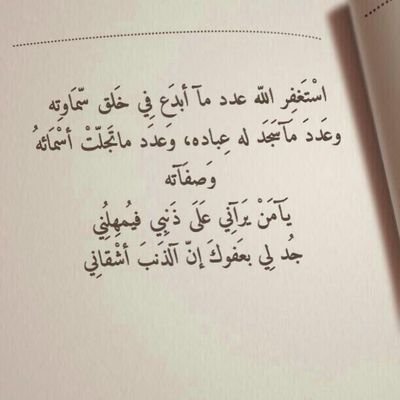 اسْتَغفِر اللّه عدد مآ أبدَع فِي خَلق سّمَاوتِه
وعَدَدَ مَآسَجَدَ له عِباده، وَعدَد ماتَجَلّتْ أسْمَائهُ
وَصفَآته
يَآمَنْ يَرَآنِي عَلَى ذَنبِي فيُمهِلُنِي
جُد لِي بعَفوكَ إنّ آلذَنبَ أشْقانِي